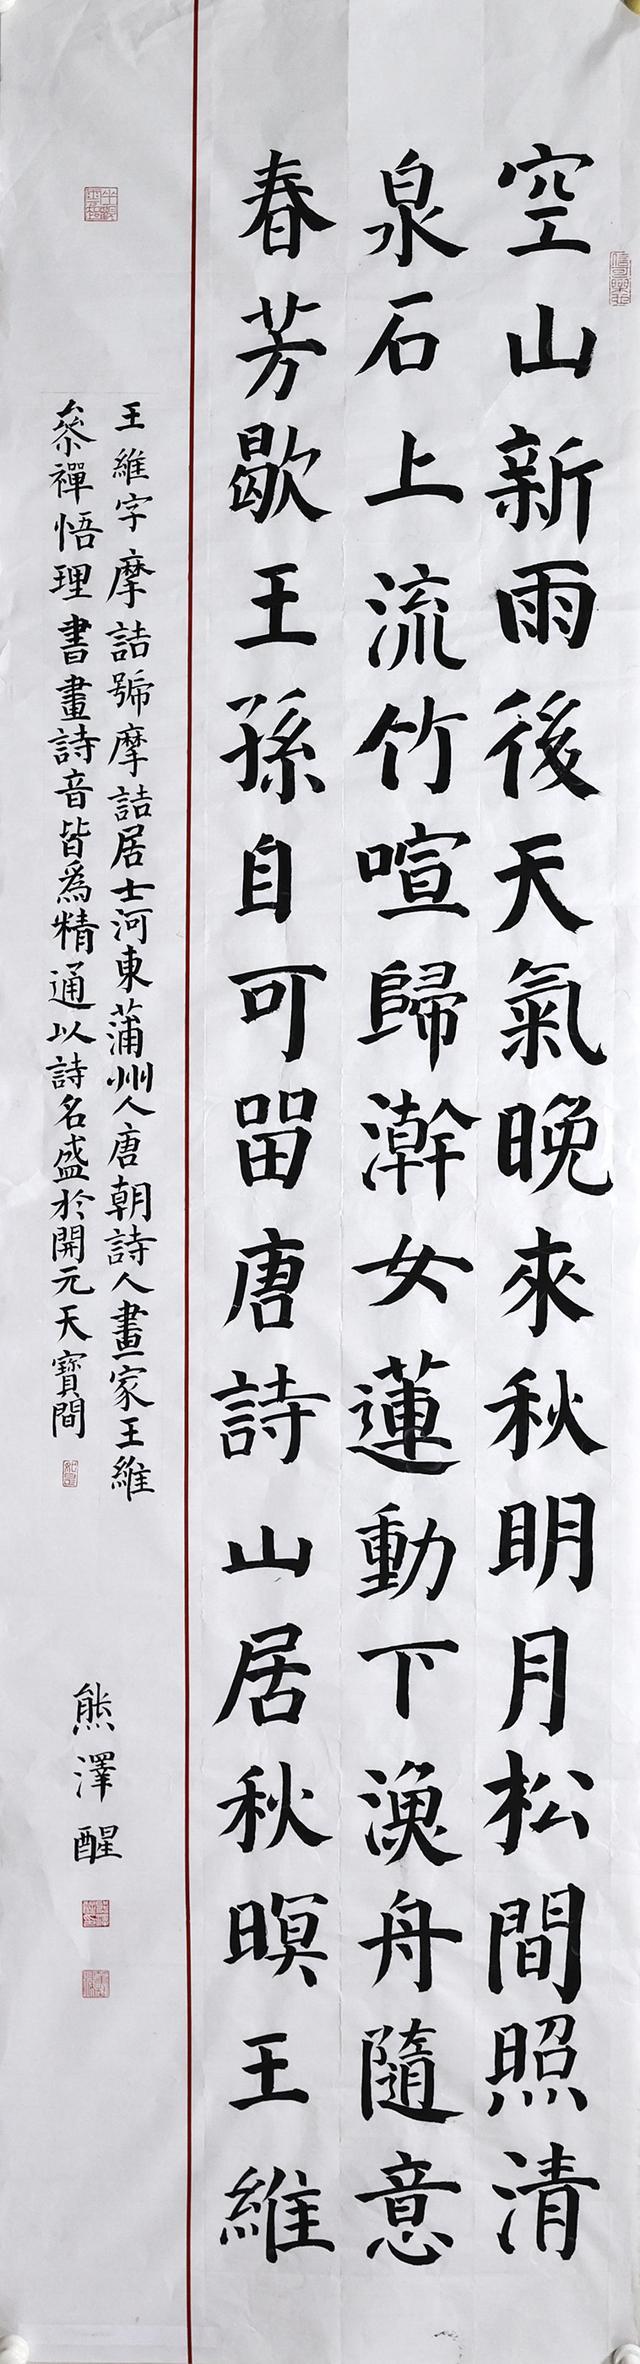 空山新雨後天氣晚來秋明月松間照清
泉石上流竹喧歸澣女蓮動下漁舟隨意
春芳歇王孫自可留唐詩山居秋暝王維
王維字摩詰號摩詰居士河東蒲州人唐朝詩人畫家王維
參禪悟理書畫詩音皆爲精通以詩名盛於開元天寶間
熊澤醒